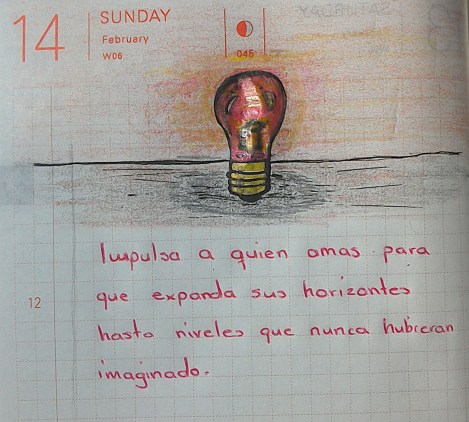 14
SUNDAY
February
W06
045
Impulsa a quien amas para
12
que expanda sus horizontes
hasta niveles que nunca hubieran
imaginado.